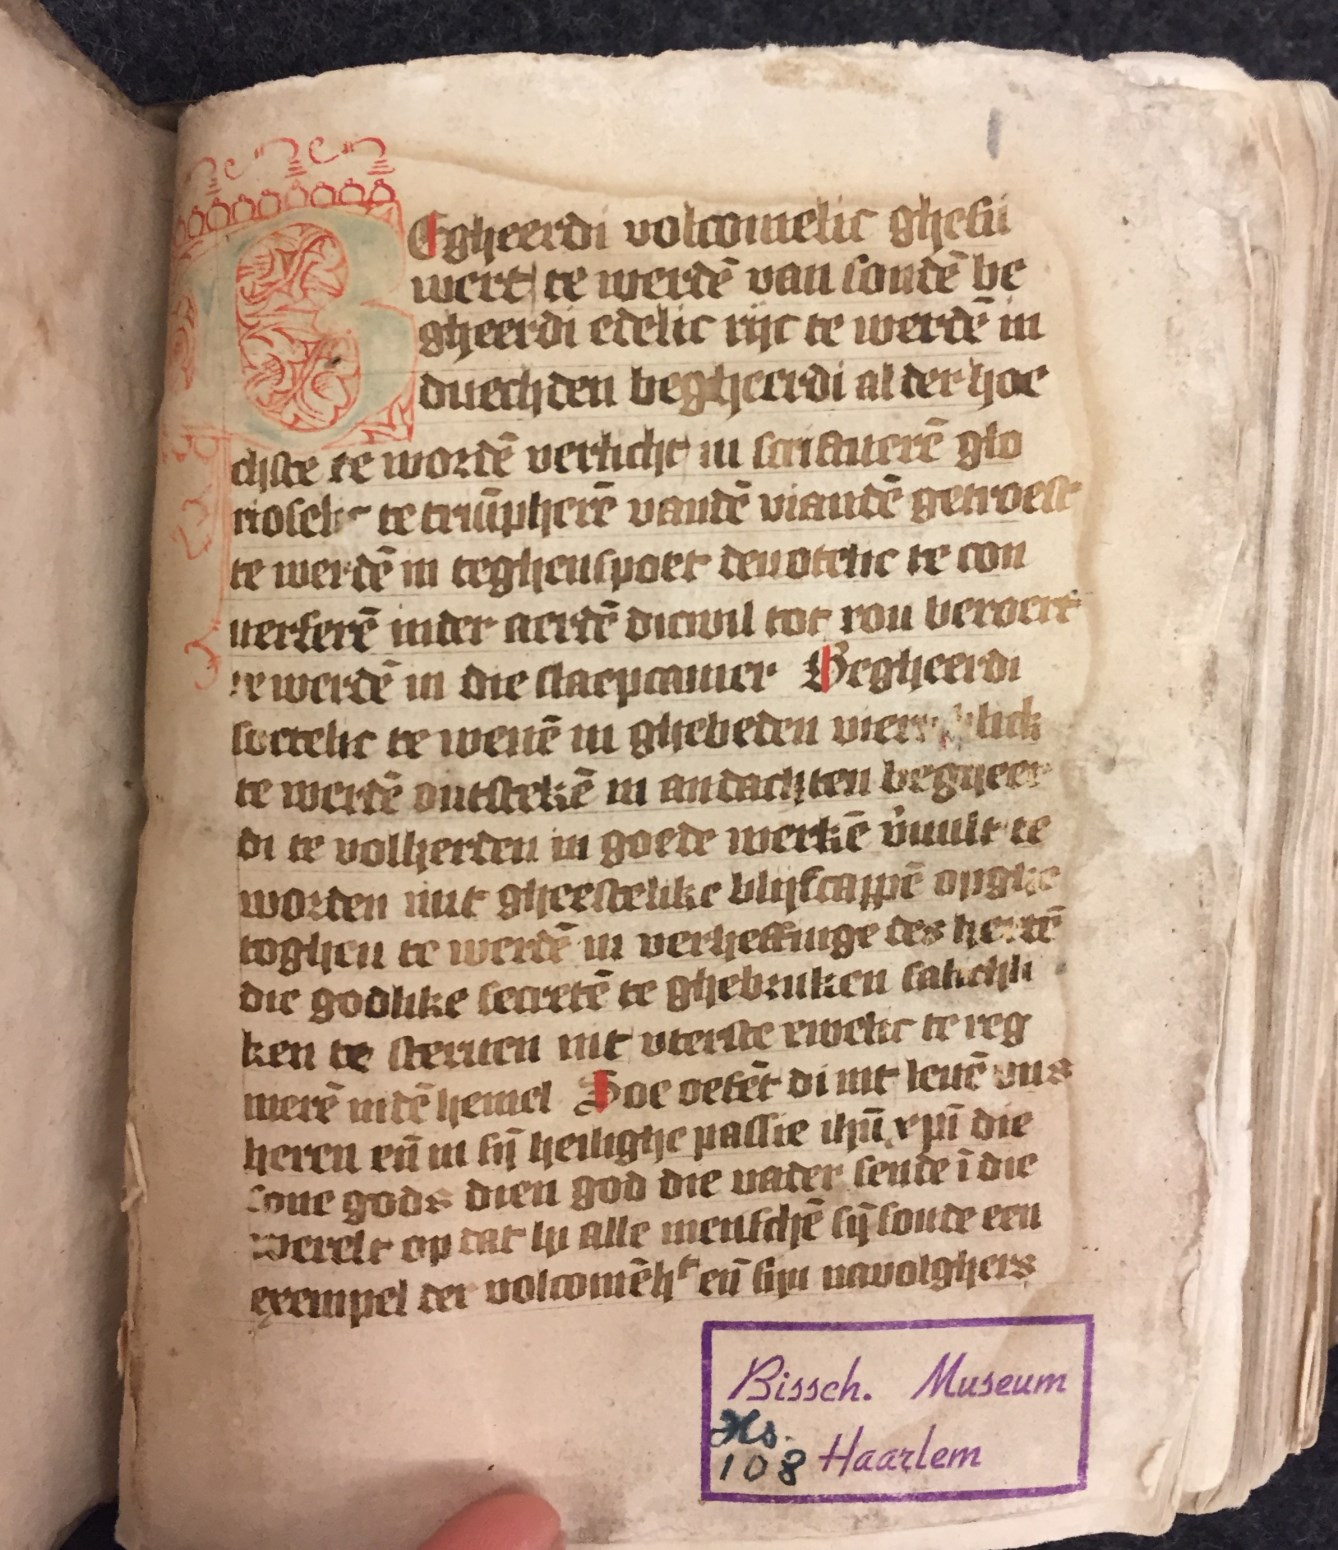 BEgheerdi volcomelic ghesu
wert te werdē van sondē be
gheerdi edelic rijc te werdē in
duechden begheerdi al der hoe
chste te wordē verlicht in scrifuuerē glo
rioselic te triūpherē vandē viandē getroest
te werdē in teghenspoet devotelic te con
uerserē inder aerdē dicwil tot rou beroert
te werdē in die slaepcamer Begheerdi
soetelic te wenē in ghebeden
te werdē ontstekē in andachten begheer
di te volherden in goede werkē v̄uult te
worden mit gheestelike blijscappē opghe
toghen te werdē in verheffinge des hertē
die godlike secretē te ghebruken salichli
ken te steruen int vterste ewelic te reg
nierē indē hemel Soe oefēt di int leuē ons
heren eñ in sijn heilighe passie ihū xpī die
sone gods dien god die vader sende ī die
werelt op dat hi alle menschē sijn soude een
exempel der volcomēht eñ sijn navolghers
Bissch. Museum
Hs.
108 Haarlem